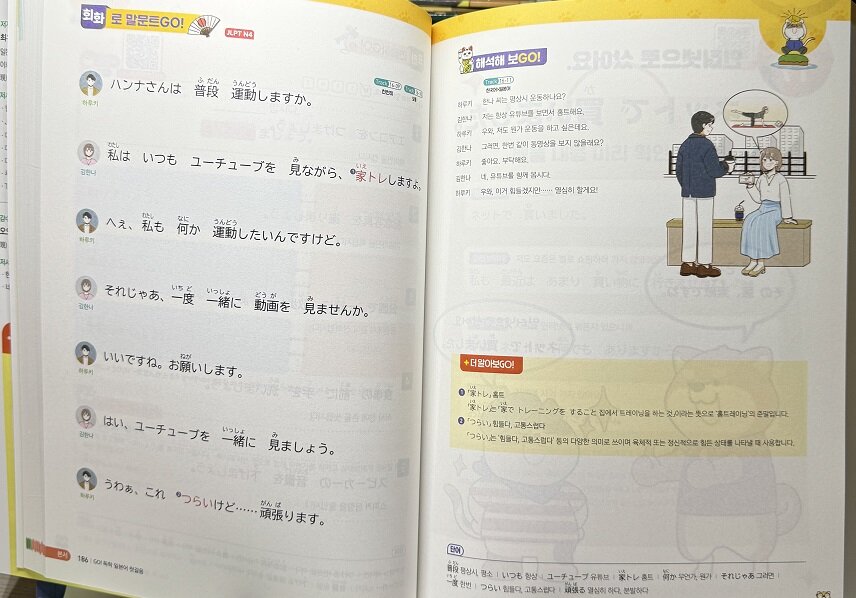 회화로 말문트GO!
JLPT N4
하루키 ハンナさんは 普段 運動しますか。
김한나 私は いつも ユーチューブを 見ながら、❶家トレしますよ。
하루키 へぇ、私も 何か 運動したいんですけど。
김한나 それじゃあ、一度 一緒に 動画を 見ませんか。
하루키 いいですね。お願いします。
김한나 はい、ユーチューブを 一緒に 見ましょう。
하루키 うわぁ、これ ❷つらいけど……頑張ります。
본서
186 | GO! 독학 일본어 첫걸음
해석해 보GO!
하루키 한나 씨는 평상시 운동하나요?
김한나 저는 항상 유튜브를 보면서 홈트해요.
하루키 우와, 저도 뭔가 운동을 하고 싶은데요.
김한나 그러면, 한번 같이 동영상을 보지 않을래요?
하루키 좋아요. 부탁해요.
김한나 네, 유튜브를 함께 봅시다.
하루키 우와, 이거 힘들겠지만…… 열심히 할게요!
+ 더 알아보GO!
❶ 「家トレ」 홈트
「家トレ」는 「家で トレーニングを すること 집에서 트레이닝을 하는 것」이라는 뜻으로 '홈트레이닝'의 준말입니다.
❷ 「つらい」 힘들다, 고통스럽다
「つらい」는 '힘들다, 고통스럽다' 등의 다양한 의미로 쓰이며 육체적 또는 정신적으로 힘든 상태를 나타낼 때 사용합니다.
단어
普段 평상시, 평소 | いつも 항상 | ユーチューブ 유튜브 | 家トレ 홈트 | 何か 무언가, 뭔가 | それじゃあ 그러면 |
一度 한번 | つらい 힘들다, 고통스럽다 | 頑張る 열심히 하다, 분발하다